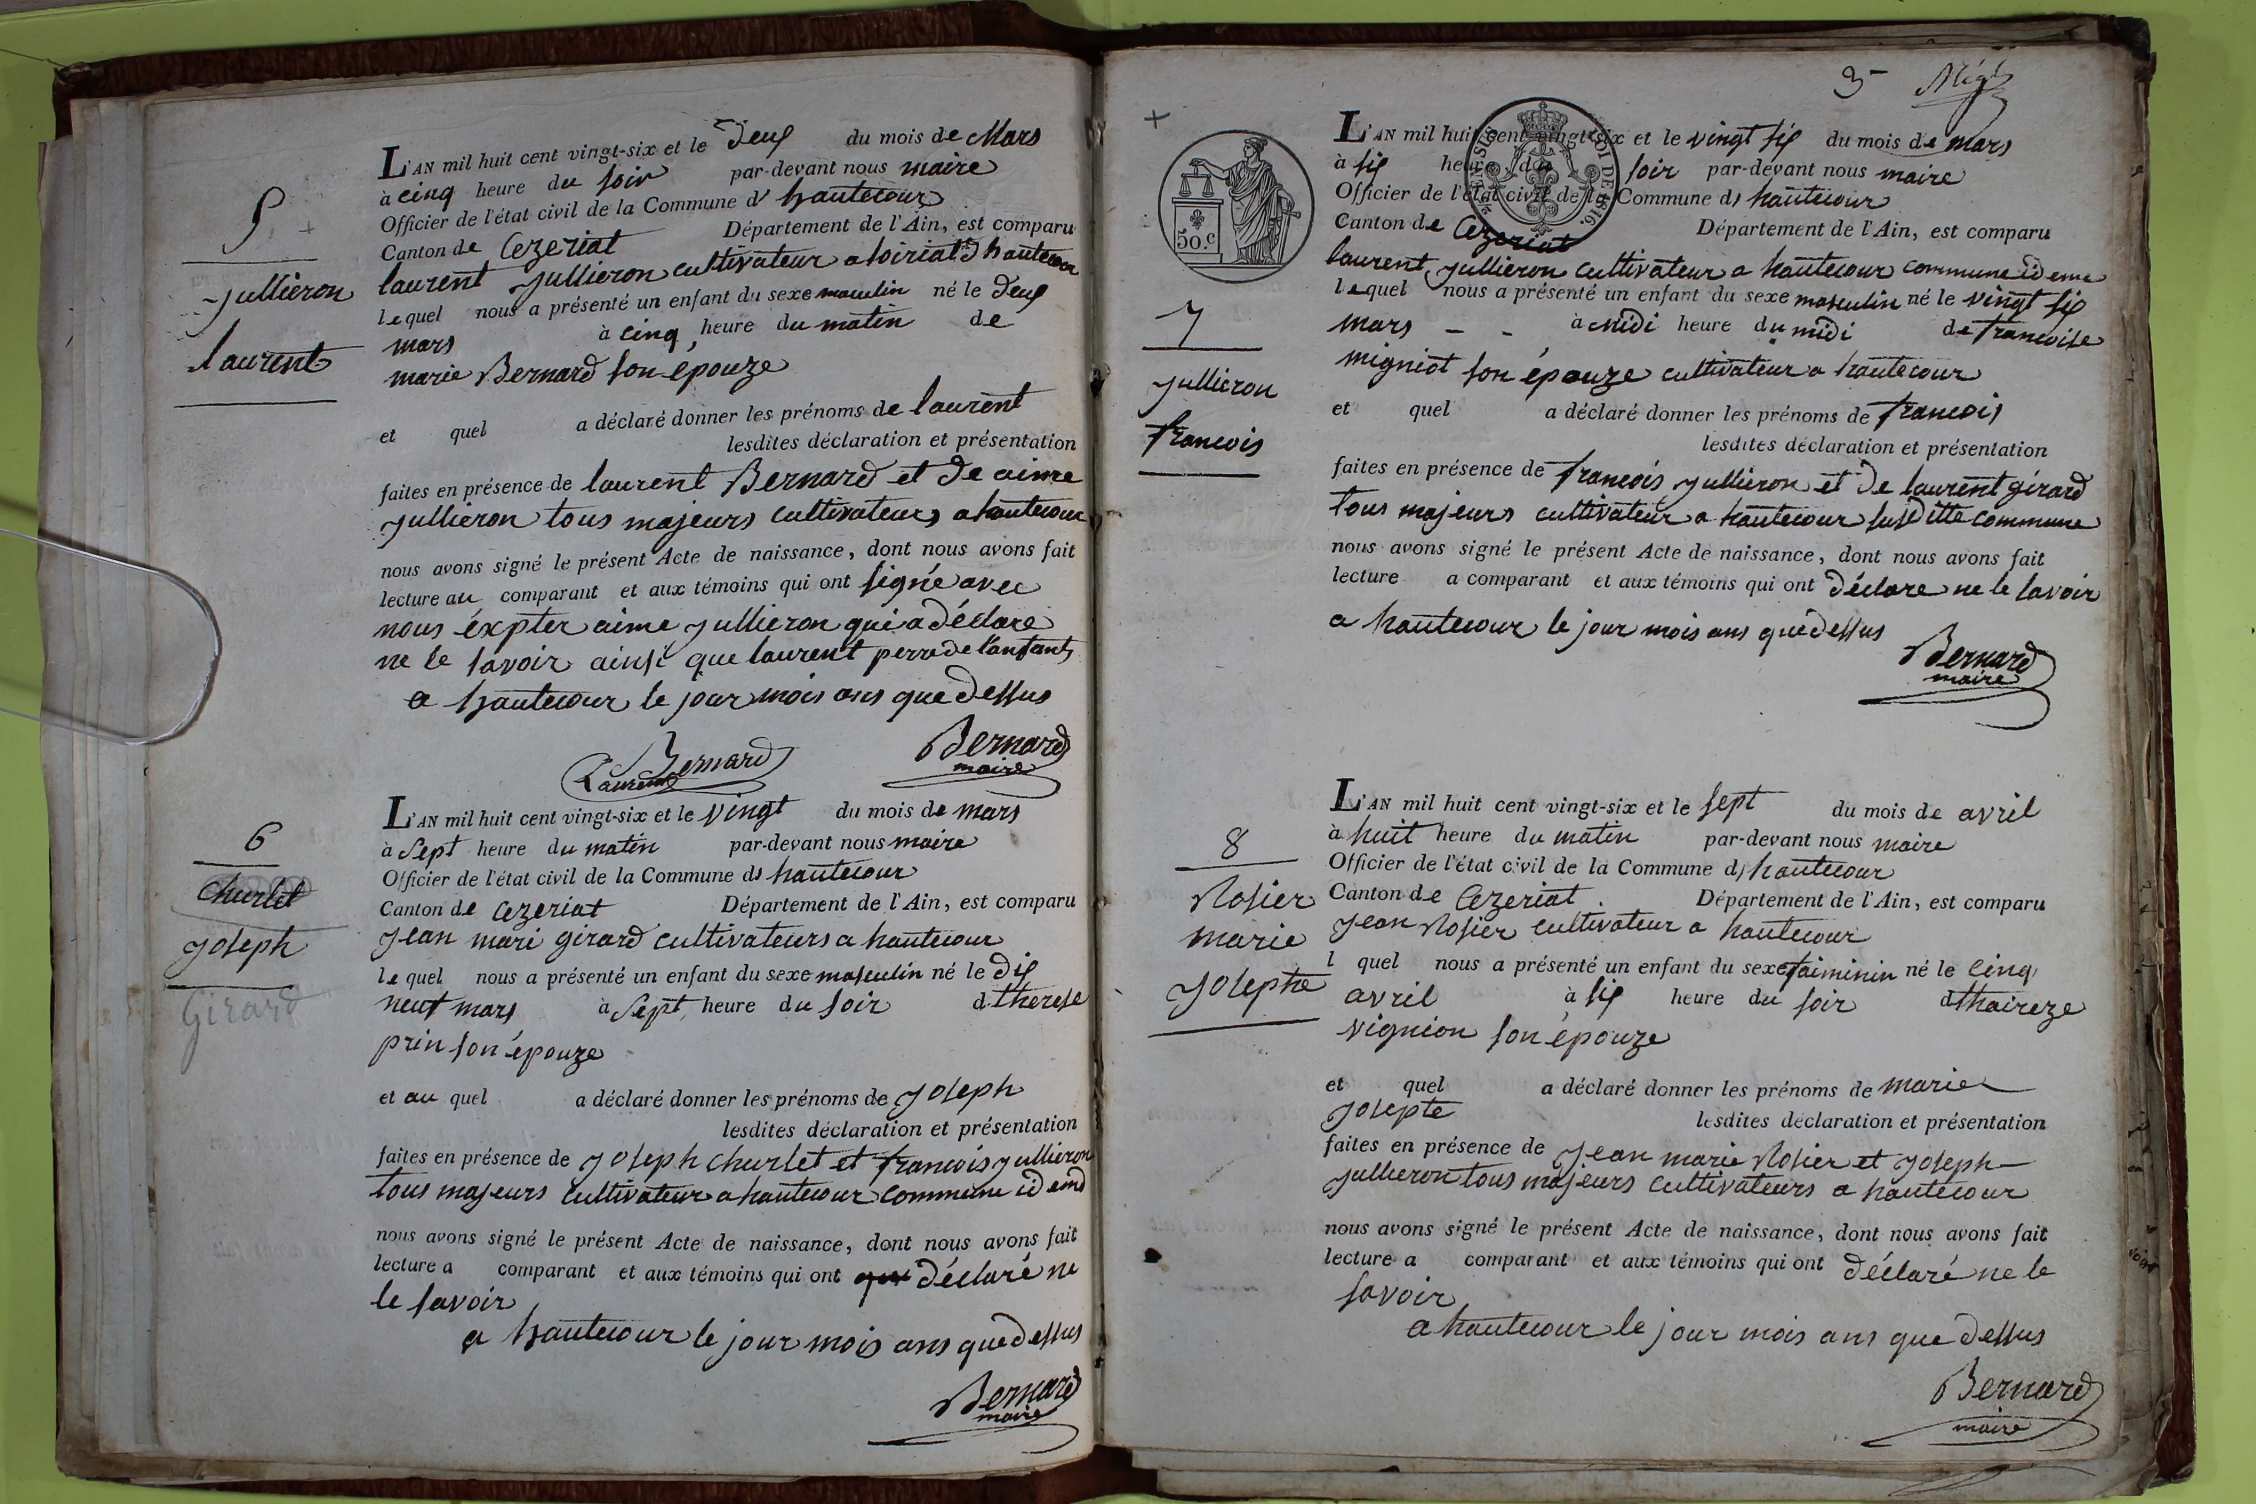 5
jullieron
laurent
L'AN mil huit cent vingt-six et le deux du mois de Mars
à cinq heure du soir par-devant nous maire
Officier de l'état civil de la Commune d' hautecour
Canton de Cezeriat Département de l'Ain, est comparu
laurent jullieron cultivateur a hautecour
le quel nous a présenté un enfant du sexe masculin né le deux
mars à cinq heure du matin de
marie Bernard son épouze
et quel a déclaré donner les prénoms de laurent
lesdites déclaration et présentation
faites en présence de laurent Bernard et de aime
jullieron tous majeurs cultivateurs a hautecour
nous avons signé le présent Acte de naissance, dont nous avons fait
lecture au comparant et aux témoins qui ont signée avec
nous éxpter aime jullieron qui a déclare
ne le savoir ainsi que laurent perre de l'anfant
a hautecour le jour mois ans que dessus
Bernard
Laurent
Bernard
maire
6
churlet
joseph
Girard
L'AN mil huit cent vingt-six et le vingt du mois de mars
à sept heure du matin par-devant nous maire
Officier de l'état civil de la Commune d hautecour
Canton de Cezeriat Département de l'Ain, est comparu
jean marie girard cultivateurs a hautecour
le quel nous a présenté un enfant du sexe masculin né le dix
neuf mars à sept heure du soir d therese
prin son épouze
et au quel a déclaré donner les prénoms de joseph
lesdites déclaration et présentation
faites en présence de joseph churlet et francois jullieron
tous majeurs cultivateur a hautecour commune idem
nous avons signé le présent Acte de naissance, dont nous avons fait
lecture a comparant et aux témoins qui ont déclaré ne
le savoir
a hautecour le jour mois ans que dessus
Bernard
maire
3
50.c
7
jullieron
francois
L'AN mil huit cent vingt-six et le vingt six du mois de mars
à six heure du soir par-devant nous maire
Officier de l'état civil de la Commune d hautecour
Canton de Cezeriat Département de l'Ain, est comparu
laurent jullieron cultivateur a hautecour commune ideme
le quel nous a présenté un enfant du sexe masculin né le vingt six
mars - - à midi heure du midi de francoise
migniot son épouze cultivateur a hautecour
et quel a déclaré donner les prénoms de francois
lesdites déclaration et présentation
faites en présence de francois jullieron et de laurent girard
tous majeurs cultivateur a hautecour susditte commune
nous avons signé le présent Acte de naissance, dont nous avons fait
lecture a comparant et aux témoins qui ont déclare ne le savoir
a hautecour le jour mois ans que dessus
Bernard
maire
8
Rosier
marie
josephe
L'AN mil huit cent vingt-six et le sept du mois de avril
à huit heure du matin par-devant nous maire
Officier de l'état civil de la Commune d hautecour
Canton de Cezeriat Département de l'Ain, est comparu
jean Rosier cultivateur a hautecour
l quel nous a présenté un enfant du sexe faiminin né le cinq
avril à six heure du soir d thaireze
vignion son épouze
et quel a déclaré donner les prénoms de marie
josepte lesdites déclaration et présentation
faites en présence de jean marie Rosier et joseph
jullieron tous majeurs cultivateurs a hautecour
nous avons signé le présent Acte de naissance, dont nous avons fait
lecture a comparant et aux témoins qui ont déclaré ne le
savoir
a hautecour le jour mois ans que dessus
Bernard
maire